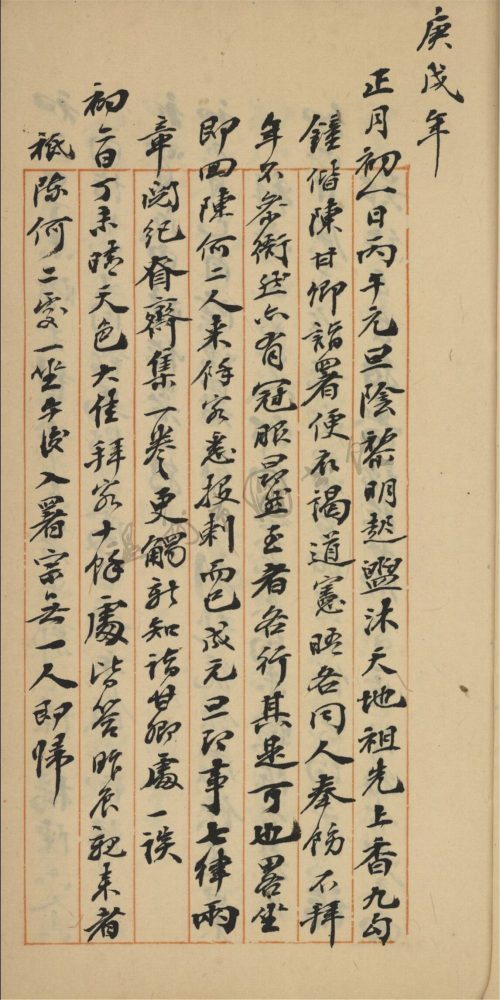 庚戌年
正月初一日丙午元旦陰黎明起盥沐天地祖先上香九句
鐘偕陳甘卿詣署便衣謁道憲晤各同人奉飭不拜
年不參衙然亦有冠服昂然至者各行其是可也畧坐
即回陳何二人來餘客悉投刺而已成元旦即事七律兩
章閱紀脊齋集一卷更觸新知詣甘卿處一談
初二日丁未晴天色大佳拜客十餘處皆答昨辰親來者
祗陳何二處一坐午後入署寂無一人即歸